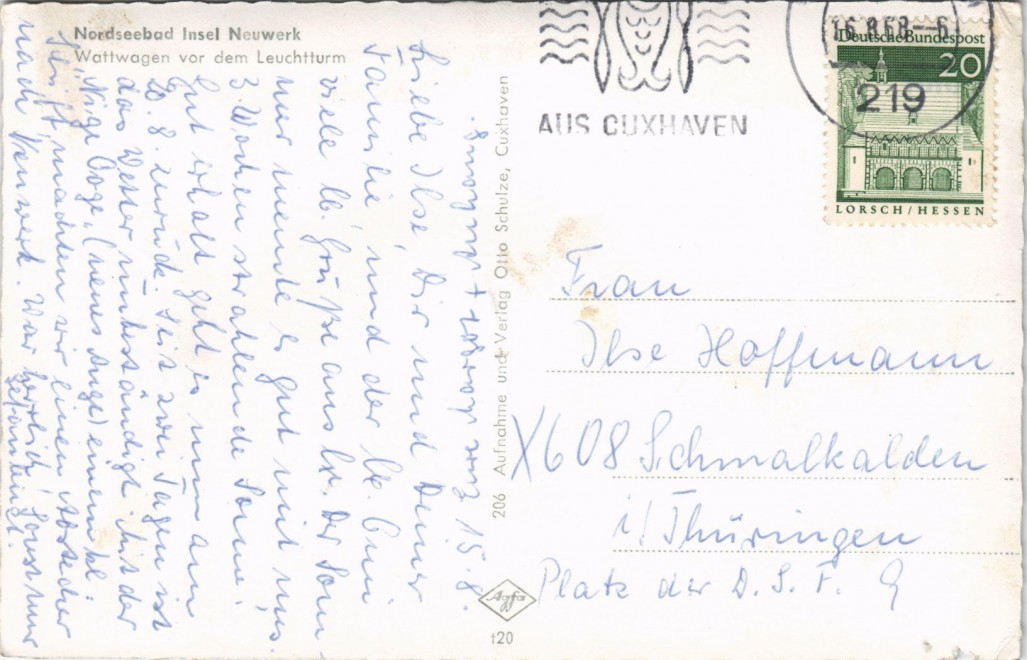 Nordseebad Insel Neuwerk
Wattwagen vor dem Leuchtturm
AUS CUXHAVEN
16.8.68--6
219
Deutsche Bundespost
20
LORSCH/HESSEN
206 Aufnahme und Verlag Otto Schulze, Cuxhaven
Agfa
t20
15.8.
Liebe Ilse, Dir und Deiner
Familie, und der lb. Omi
viele lb. Grüße aus Cux. Der Som
mer meinte es gut mit uns.
3 Wochen strahlende Sonne!
Gut erholt geht es nun am
20.8. zurück. Seit zwei Tagen ist
das Wetter unbeständig. Mit der
"Nige Oge" (neues Auge) einem kl.
Schiff, machten wir einen Abstecher
nach Neuwerk. War herrlich! Sonst nur
Frau
Ilse Hoffmann
X608 Schmalkalden
i/Thüringen
Platz der D.S.F. 9